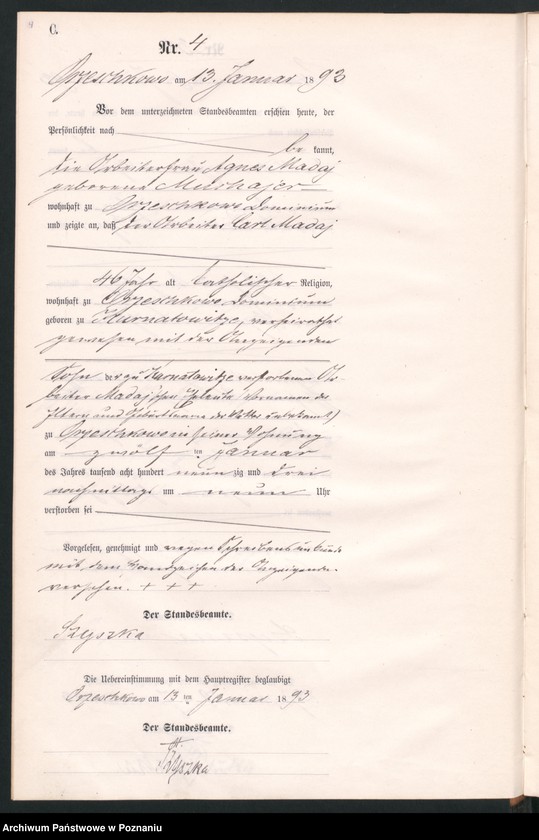 C.
Nr. 4
Orzeschkowo am 13. Januar 1893
Vor dem unterzeichneten Standesbeamten erschien heute, der
Persönlichkeit nach be kannt,
die Arbeiterfrau Agnes Madaj
geborene
wohnhaft zu Orzeschkowo Dominium
und zeigte an, daß der Arbeiter Carl Madaj
46 Jahr alt katholischer Religion,
wohnhaft zu Orzeschkowo, Dominium
geboren zu verheirathet
gewesen mit der Anzeigenden
Sohn der zu verstorbenen Ar-
beiter Madaj'schen Eheleute Vornamen der
Eltern und Geburtsname der Mutter unbekannt)
zu Orzeschkowo in seiner Wohnung
am zwölf ten Januar
des Jahres tausend acht hundert neun zig und drei
nachmittags um neun Uhr
verstorben sei
Vorgelesen, genehmigt und wegen Schreibensunkunde
mit dem Handzeichen der Anzeigenden
versehen. + + +
Der Standesbeamte.
Szyszka
Die Uebereinstimmung mit dem Hauptregister beglaubigt
Orzeschkowo am 13 ten Januar 1893
Der Standesbeamte.
Szyszka
Archiwum Państwowe w Poznaniu